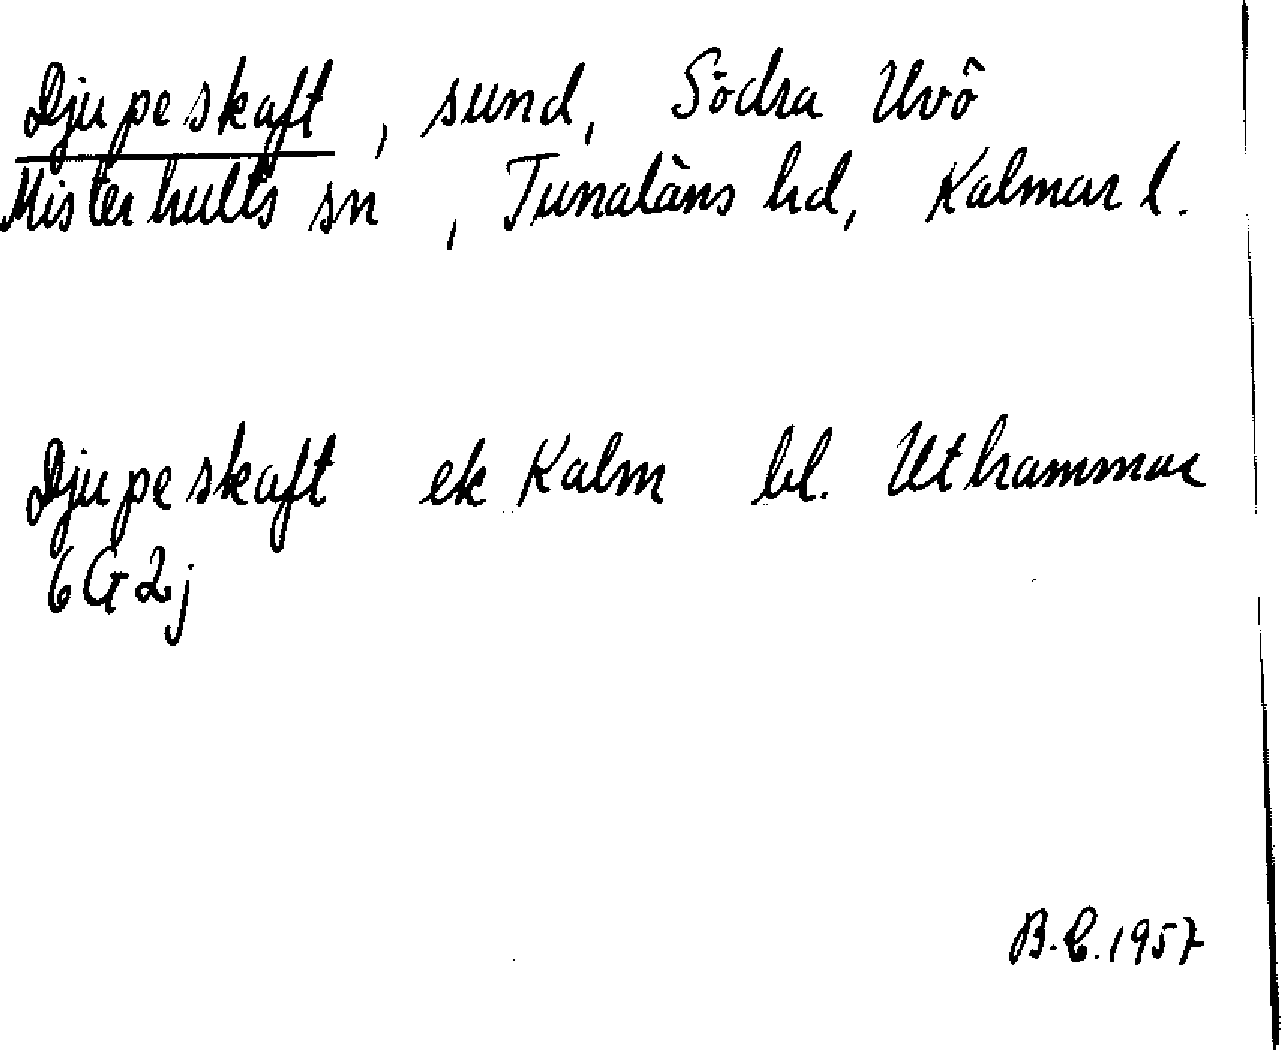 Djupeskaft, sund, Södra Uvö
Misterhults sn, Tunaläns hd, Kalmar l.
Djupeskaft ek Kalm bl. Uthammar
6G2j
B.E. 1957